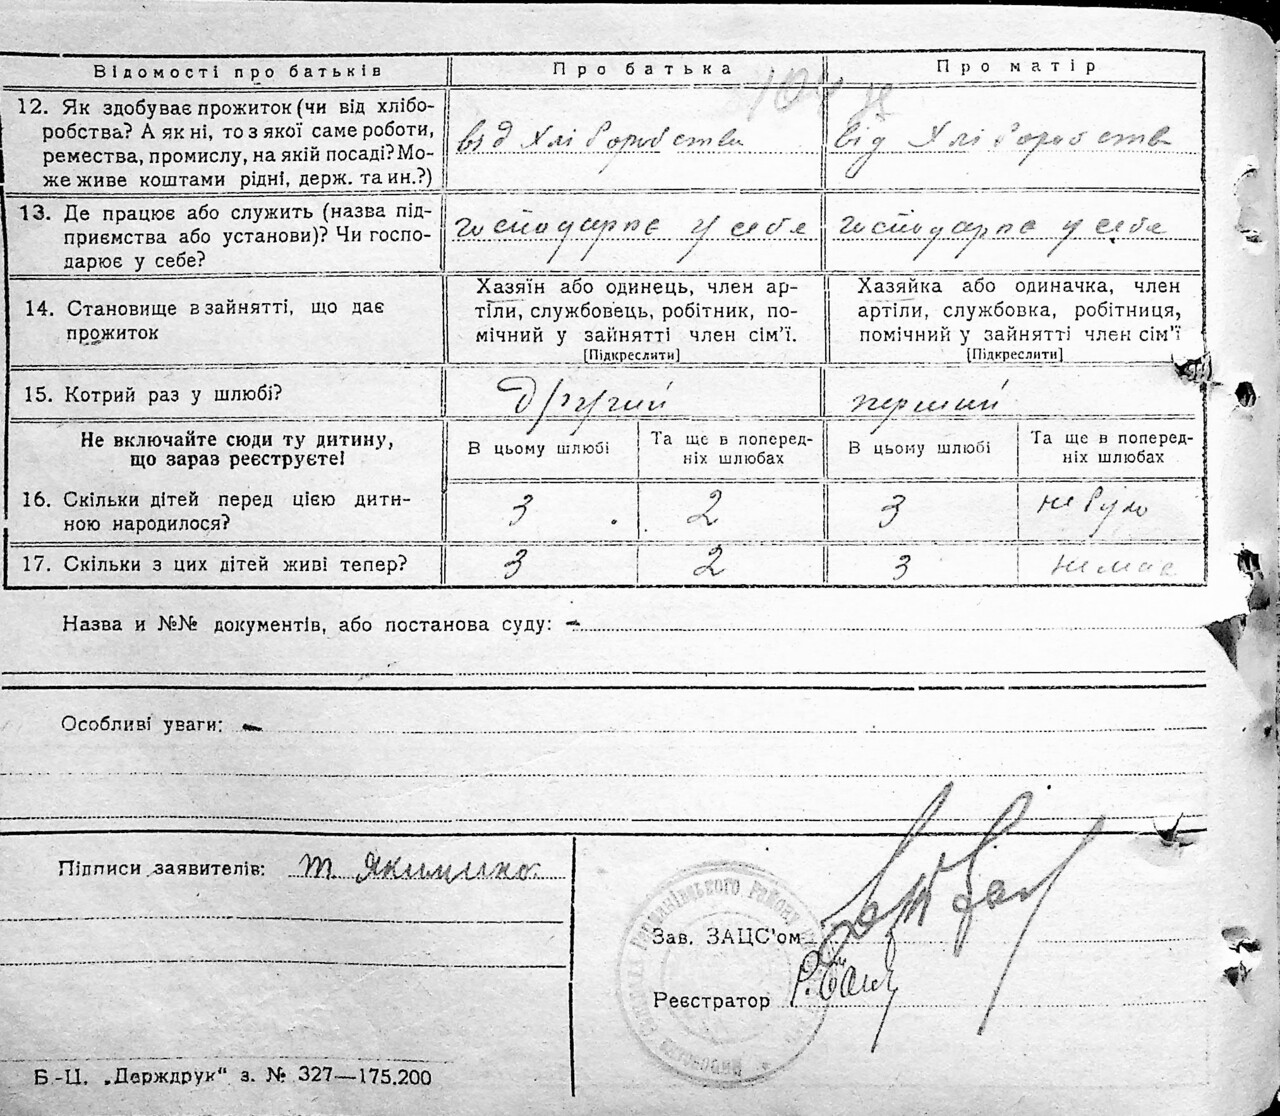 Відомості про батьків Про батька Про матір
12. Як здобуває прожиток (чи від хлібо-
робства? А як ні, то з якої саме роботи,
ремества, промислу, на якій посаді? Мо-
же живе коштами рідні, держ. та ин.?)
від Хліборобства від Хліборобства
13. Де працює або служить (назва під-
приємства або установи)? Чи госпо-
дарює у себе?
господарює у себе господарює у себе
14. Становище в зайнятті, що дає
прожиток
Хазяїн або одинець, член ар-
тіли, службовець, робітник, по-
мічний у зайнятті член сім'ї.
[Підкреслити]
Хазяйка або одиначка, член
артіли, службовка, робітниця,
помічний у зайнятті член сім'ї
[Підкреслити]
15. Котрий раз у шлюбі? другий перший
Не включайте сюди ту дитину,
що зараз реєструєте!
В цьому шлюбі
Та ще в поперед-
ніх шлюбах
В цьому шлюбі
Та ще в поперед-
ніх шлюбах
16. Скільки дітей перед цією дити-
ною народилося?
3 2 3 не було
17. Скільки з цих дітей живі тепер? 3 2 3 немає
Назва и №№ документів, або постанова суду: -
Особливі уваги: -
Підписи заявителів: Т Якимико
Зав. ЗАЦС'ом
Реєстратор
Б.-Ц. „Держдрук" з. № 327—175.200